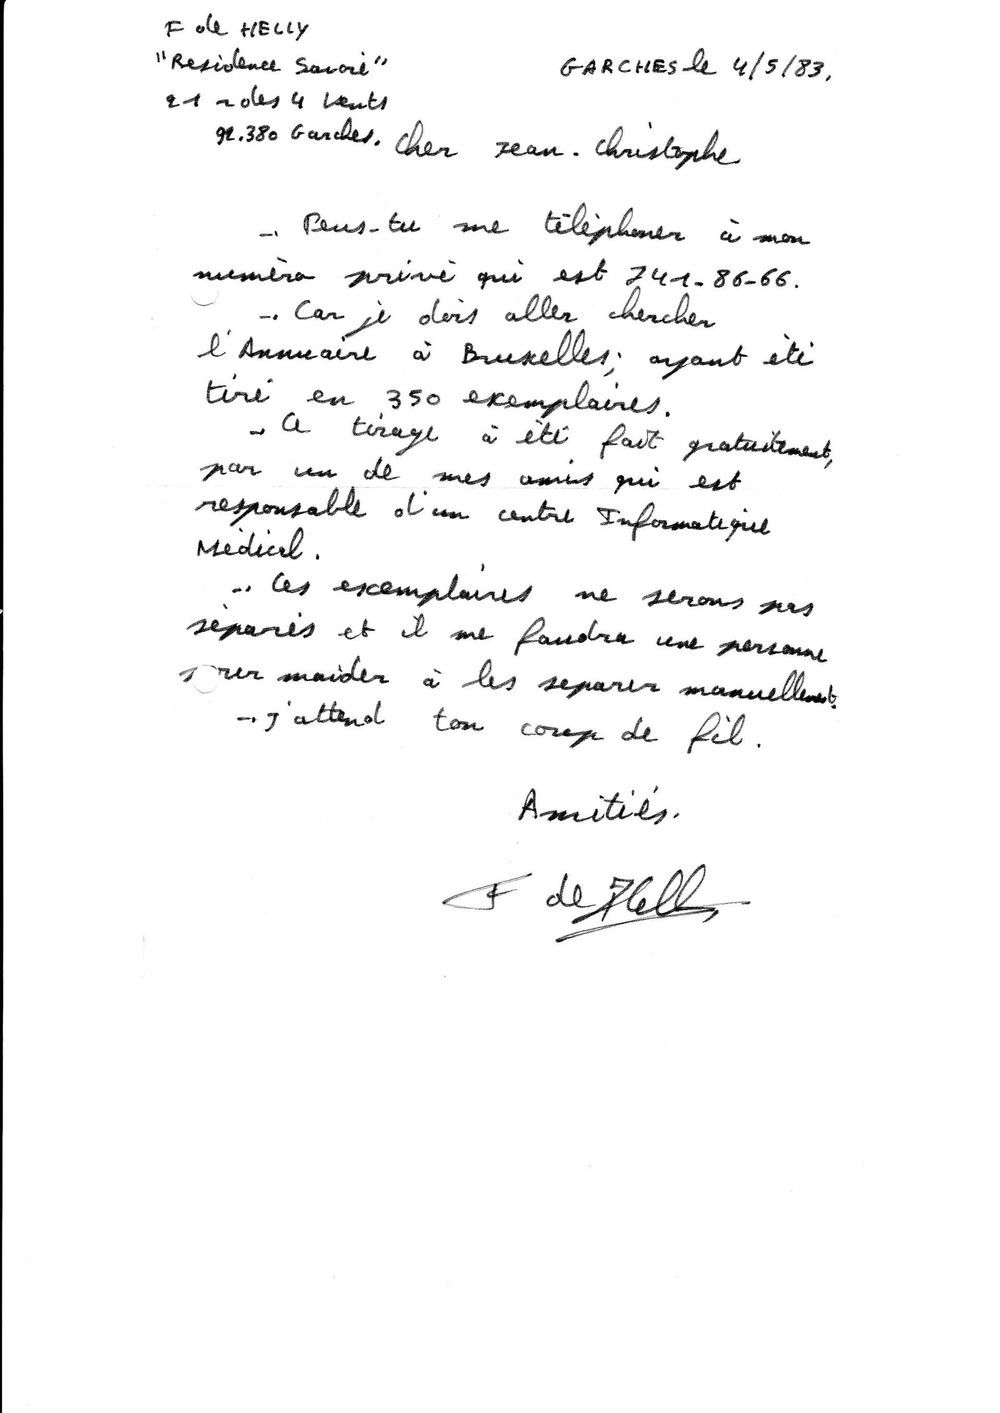 F de HELLY
"Residence Savoie"
21 r des 4 Vents
92.380 Garches.
GARCHES le 4/5/83.
Cher Jean-Christophe
-. Peus-tu me téléphoner à mon
numéro privé qui est 741-86-66.
-. Car je dois aller chercher
l'Annuaire à Bruxelles; ayant été
tiré en 350 exemplaires.
-. Ce tirage à été fait gratuitement,
par un de mes amis qui est
responsable d'un centre Informatique
Médical.
-. Ces exemplaires ne serons pas
séparés et il me faudra une personne
maider à les separer manuellement.
-. J'attend ton coup de fil.
Amitiés.
F de Helly